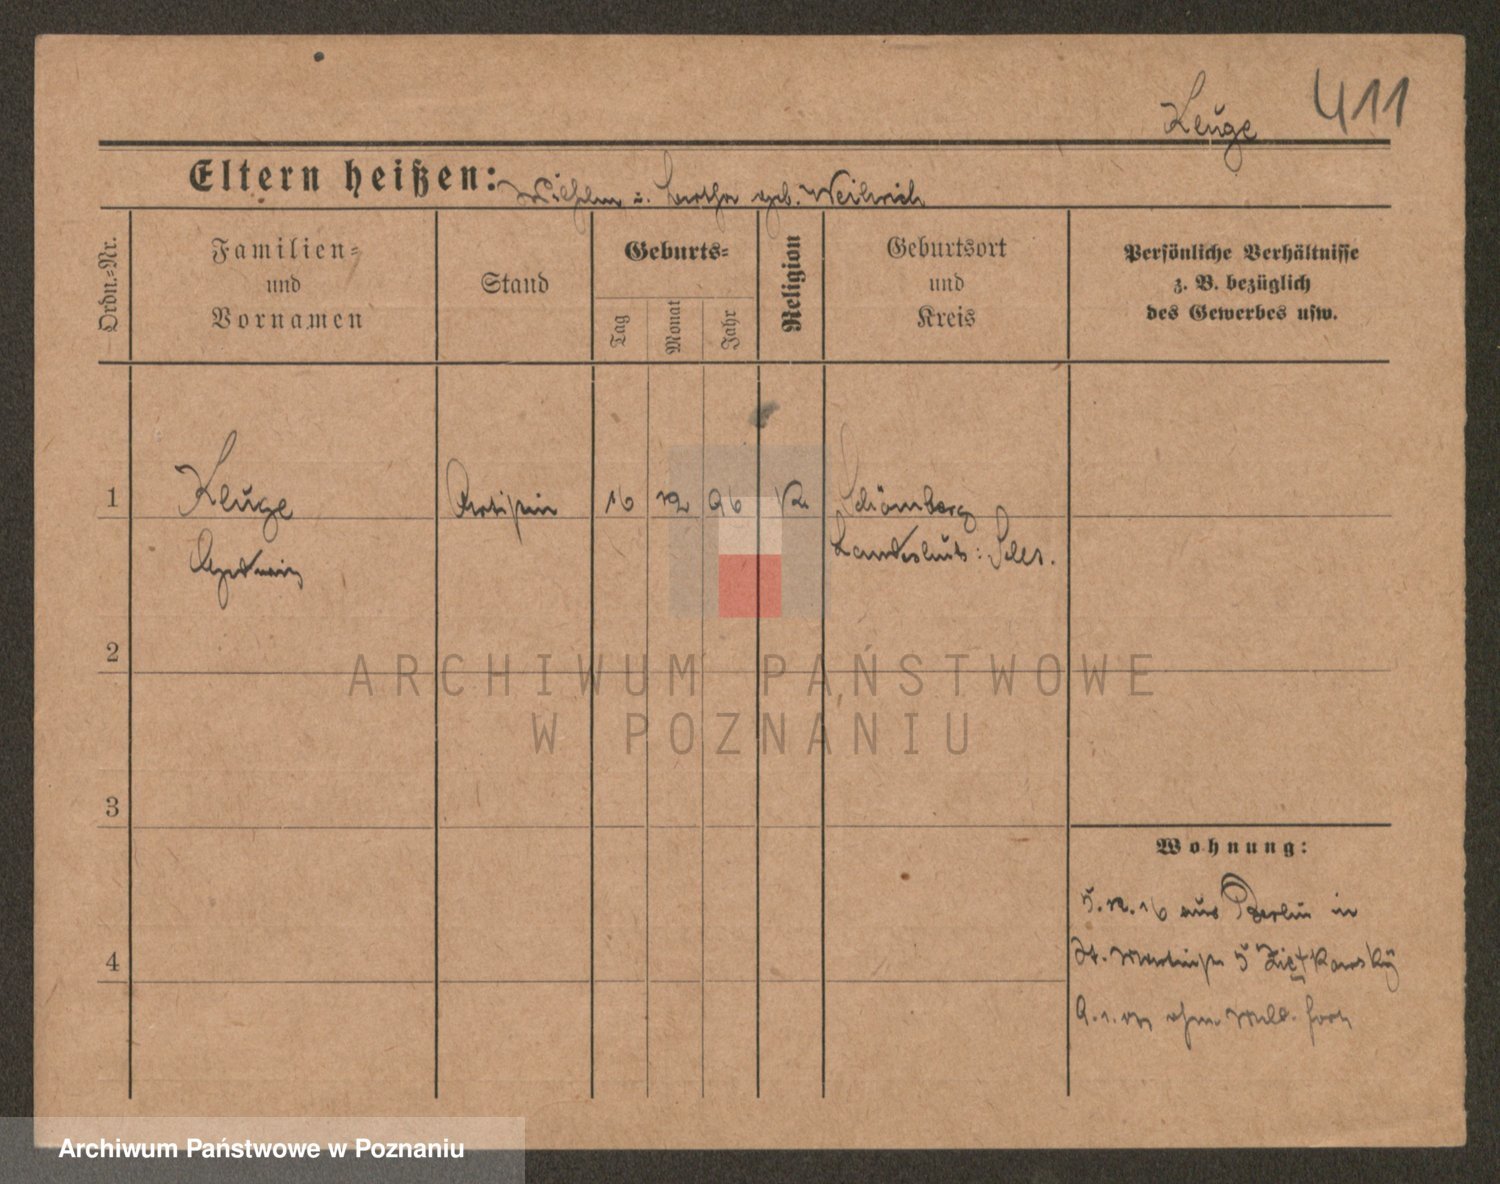 Kluge 411
Eltern heißen: Wilhelm u. Bertha geb. Weihrich
Ordn.-Nr.
Familien-
und
Vornamen
Stand
Geburts-
Tag
Monat
Jahr
Religion
Geburtsort
und
Kreis
Persönliche Verhältnisse
z. B. bezüglich
des Gewerbes usw.
1 Kluge Artistin 16 12 96 K Schömberg
Hedwig Landeshut i. Schles.
2
3
4
Wohnung:
5.12.16 aus Berlin in
St. Martinstr 5
9.1.17 ohne Meld. fort
ARCHIWUM PAŃSTWOWE
W POZNANIU
Archiwum Państwowe w Poznaniu